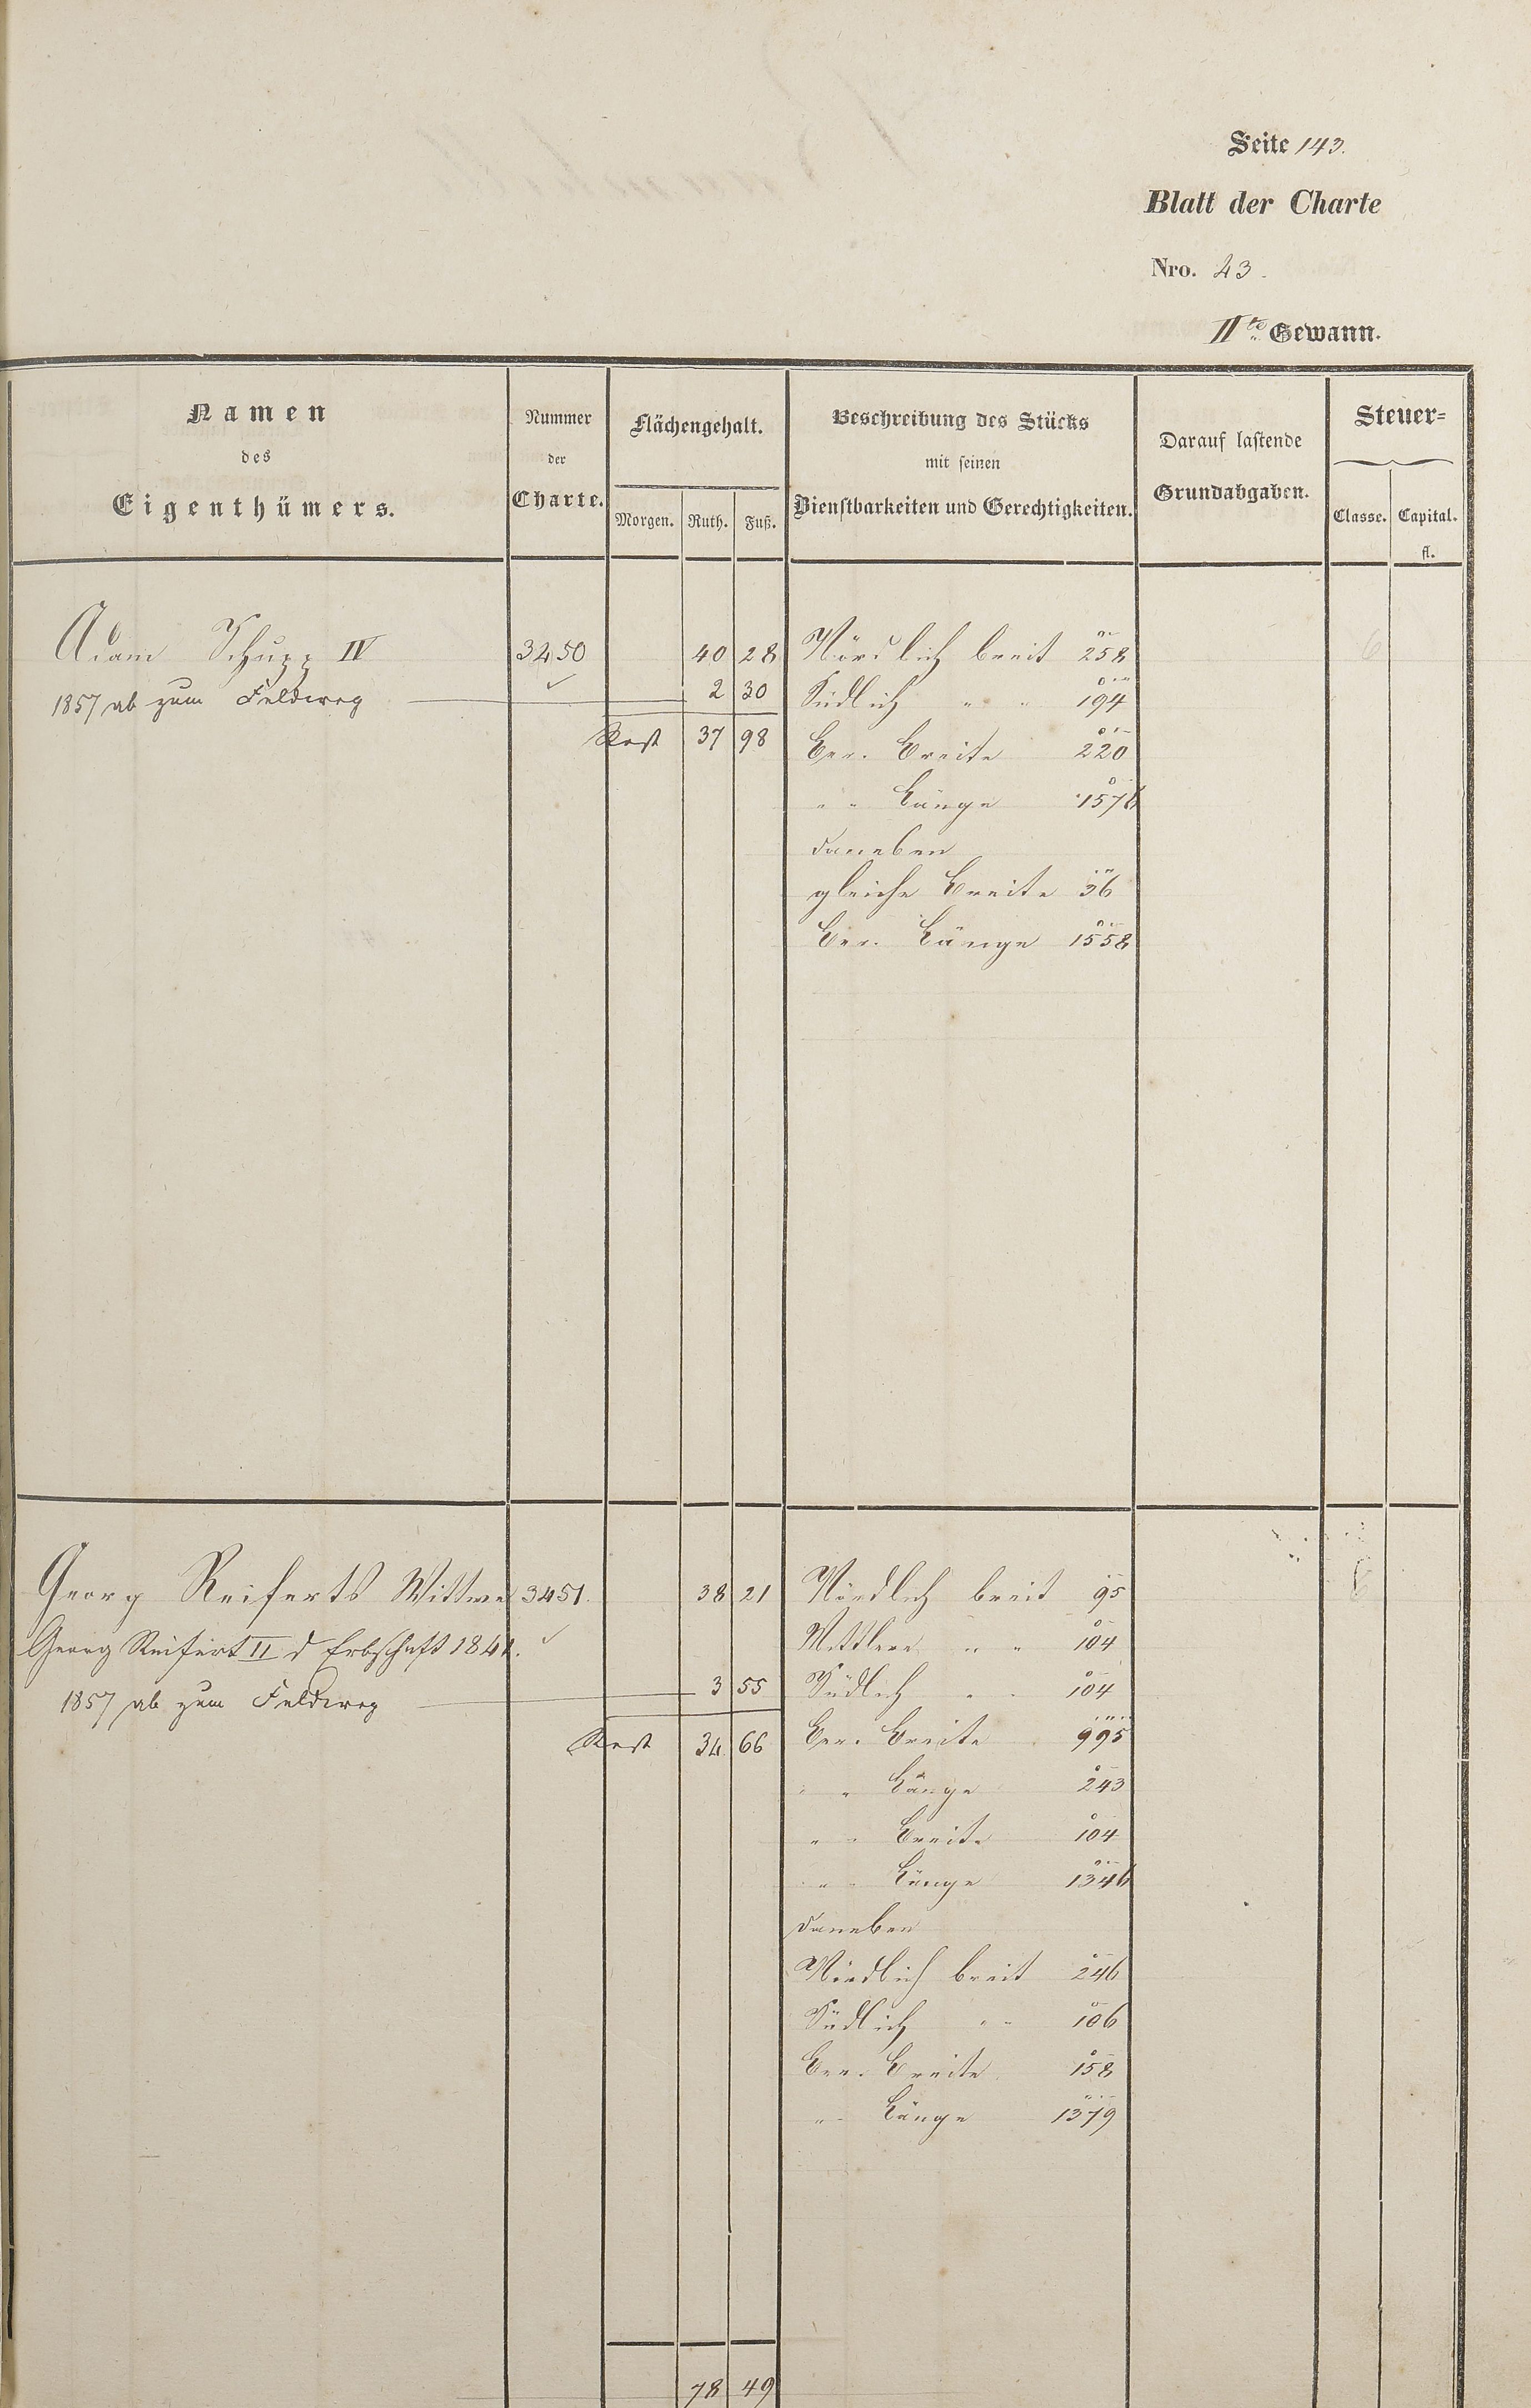 Seite 143.
Blatt der Charte
Nro. 23.
IIte Gewann.
Namen
des
Eigenthümers.
Nummer
der
Charte.
Flächengehalt.
Morgen. Ruth. Fuß.
Beschreibung des Stücks
mit seinen
Dienstbarkeiten und Gerechtigkeiten.
Darauf lastende
Grundabgaben.
Steuer=
Classe. Capital.
fl.
Adam Schupp IV 3450 40 28 Nördlich breit 258 6
1857 ab zum Feldweg 2 30 Südlich " " 194
Rest 37 98 Ber. Breite 220
" " Länge 1576
daneben
gleiche Breite 36
Ber. Länge 1558
Georg Reiferts Wittwe 3451. 38 21 Nördlich breit 95 6
Georg Reifert II d Erbschaft Mittlere " " 104
1857 ab zum Feldweg 3 55 Südlich " " 104
Rest 34 66 Ber. Breite 995
" " Länge 243
" " Breite 104
" " Länge 1346
daneben
Nördlich breit 246
Südlich " " 106
Ber. Breite 158
" " Länge 1379
78 49